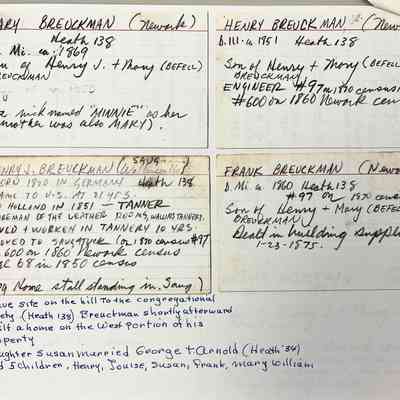 ARY BREUCKMAN (Newark)
Heath 138
. Mi. ca. 1869
n of Henry J. + Mary (BEFELL)
REUCKMAN
nick named "MINNIE" as her
mother was also MARY).
HENRY BREUCKMAN (New
D. Ill. a 1851 Heath 138
Son of Henry + Mary (BEFELL)
BREUCKMAN
ENGINEER #97 in 1870 census
#600 on 1860 Newark cens
NRY J. BREUCKMAN (SAUG
ORN 1820 IN GERMANY Heath 138
AME TO U.S. AT 21 YRS.
HOLLAND IN 1851 - TANNER
REMAN OF THE LEATHER ROOMS, WALLINS TANNERY.
+ WORKED IN TANNERY 10 YRS.
OVED TO SAUGATUCK (on 1870 census #97
600 on 1860 Newark census
68 in 1850 census
Home still standing in Saug)
FRANK BREUCKMAN (Newa
D. Mi. ca 1860 Heath 138
#97 on 1870 census
Son of Henry + Mary (BEFEL
BREUCKMAN
Dealt in building supplie
1-23-1875.
ave site on the hill to the congregational
iety. (Heath 138) Breuckman shortly afterward
ilt a home on the West portion of his
operty
ughter Susan married George T. Arnold (Heath 34)
d 5 children, Henry, Louise, Susan, Frank, Mary William